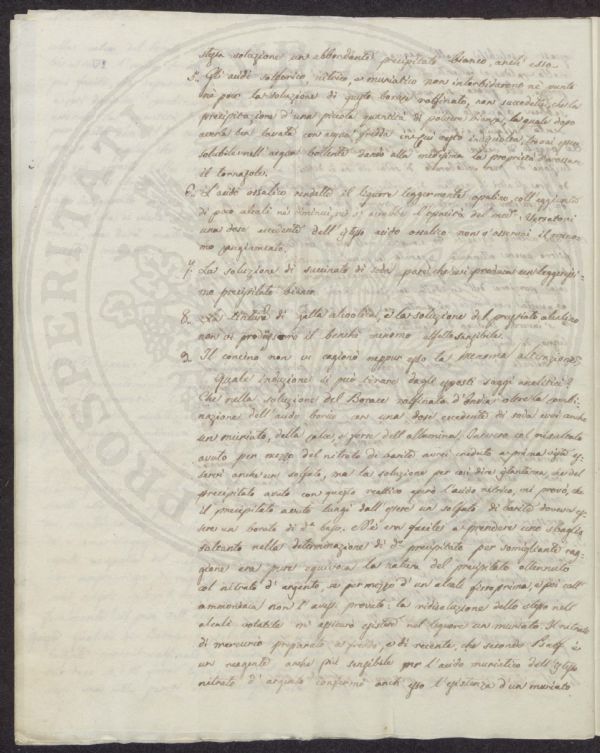 stessa soluzione un abbondante precipitato bianco, anch' esso
5.° Gli acidi solforico, nitrico, e muriatico non intorbidarono nè punto
nè poco la soluzione di questo borace raffinato, non succedette che la
precipitazione d'una piccola quantità di polvere bianca, la quale dopo
averla ben lavata con acqua fredda in cui restò insoluta, trovai
solubile nell' acqua bollente dando alla medesima la proprietà d'arrossare
il tornasole.
6.° L'acido ossalico rendette il liquore leggermente opalino, coll' aggiunta
di poco alcali nè diminuì, nè si accrebbe l'opacità del med.° Versatovi
una dose eccedente dell' istesso acido ossalico non s'osservò il meno
mo cangiamento.
7.° La soluzione di succinato di soda pare che vi produca un leggeris
mo precipitato bianco
8. La tintura di galla alcoolica, e la soluzione del prussiato alcalino
non vi produssero il benchè menomo effetto sensibile.
9. Il concino non vi cagionò neppur esso la menoma alterazione.
Quale induzione si può tirare dagli esposti saggi analitici?
Che nella soluzione del Borace raffinata d'India oltre la combi-
nazione dell' acido borico con una dose eccedente di soda evvi anche
un muriato, della calce, e forse dell' allumina. Intorno al risultato
avuto per mezzo del nitrato di barite avrei creduto a prima vista es
servi anche un solfato, ma la soluzione per così dire istantanea del
precipitato avuto con questo reattivo sopra l'acido nitrico, mi provò, che
il precipitato avuto lungi dall' essere un solfato di barite doveva es
sere un borato di d.ª base. Nè era facile a prendere uno sbaglio
soltanto nella determinazione di d.° precipitato per somigliante rag
gione era pure equivoca la natura del precipitato ottenuto
col nitrato d' argento, se per mezzo d' un alcali fisso prima, e poi coll'
ammoniaca non l' avessi provato: la ridissoluzione dello stesso nell'
alcali volatile m' assicurò esistere nel liquore un muriato. Il nitrato
di mercurio preparato a freddo, e di recente, che secondo è
un reagente anche più sensibile per l'acido muriatico dell' istesso
nitrato d' argento confermò anch' esso l' esistenza d' un muriato
PROSPERITATI